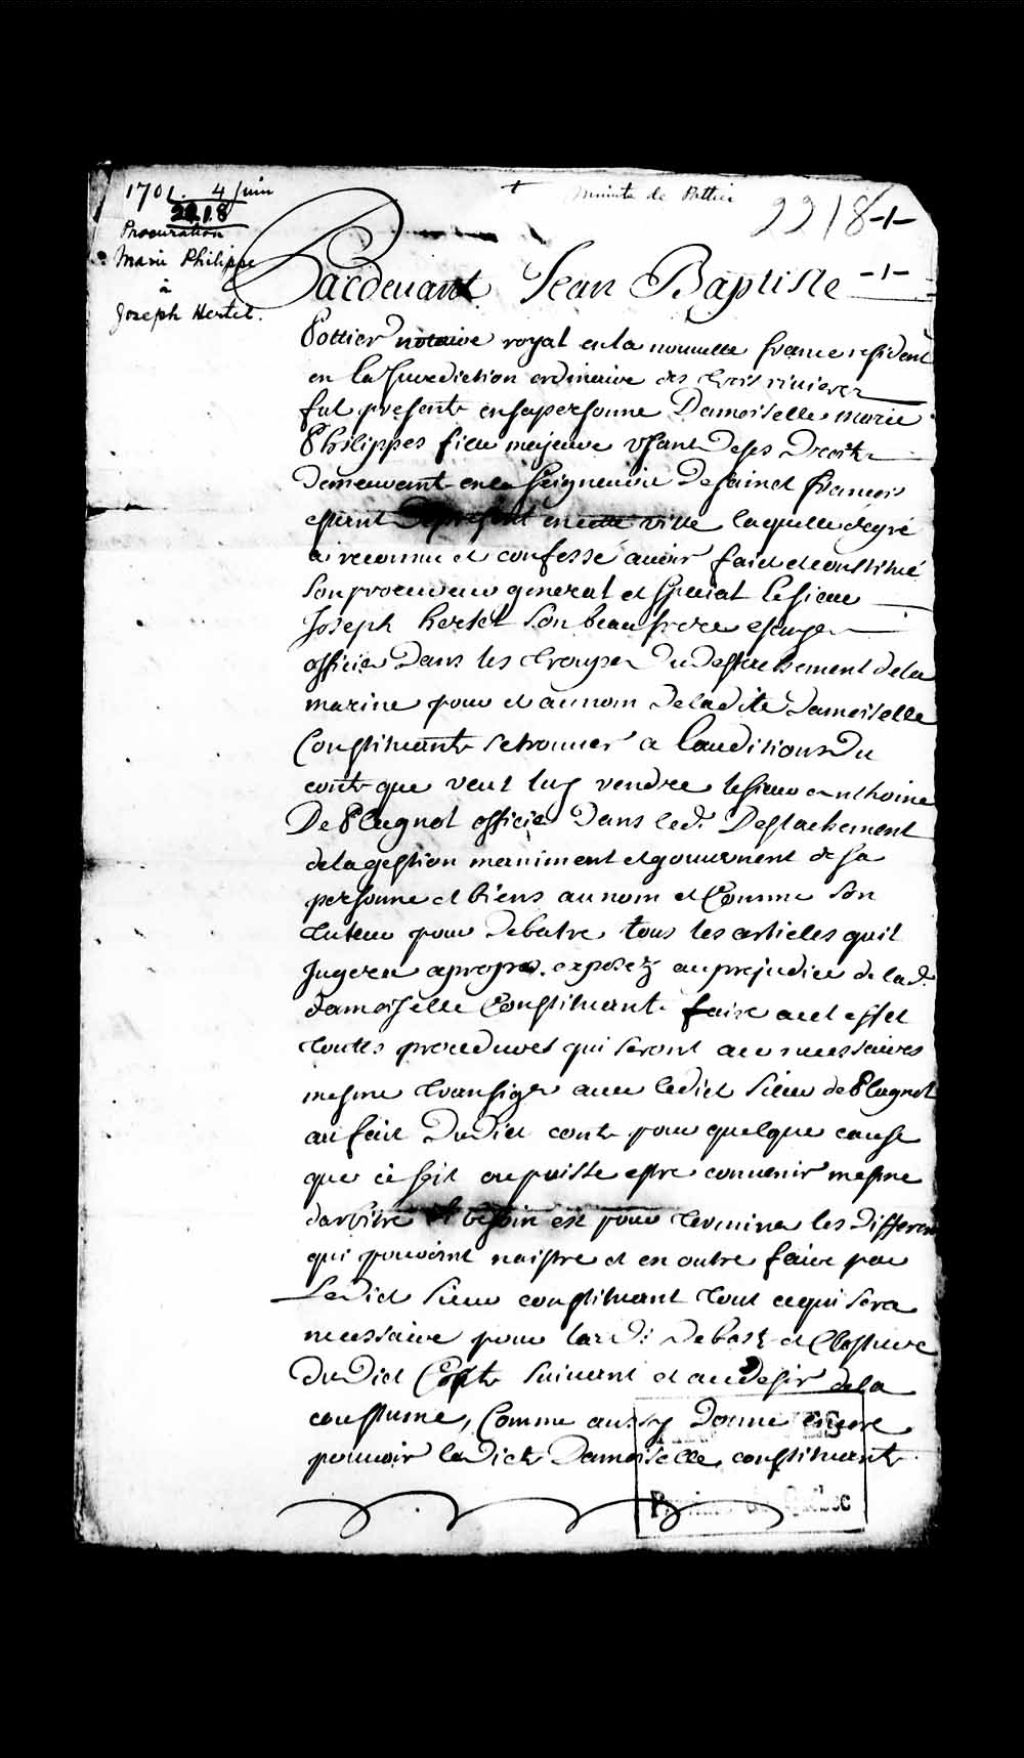 1701 4 Juin
2218
Procuration
Marie Philippe
à
Joseph Hertel.
+ minute de Pottier
2218 -1-
Pardevant Jean Baptiste -1-
Pottier notaire royal en la nouvelle france residant
en la Jurediction ordinaire des trois rivieres
fut presente en sa personne Damoiselle marie
Philippes fille majeure usant de ses Droits
demeurant en la seigneurie de sainct francois
estant de present en cette ville laquelle de gré
a reconnu et confessé avoir faict et constitué
son procureur general et special le sieur
Joseph hertel son beau frere
officier Dans les trouppes du destachement de la
marine pour et au nom de ladite damoiselle
Constituante se trouver a lauditions Du
conte que veut luy rendre le sieur anthoine
De Plagnol officier Dans led. Destachement
de la gestion maniment et gouvernent de sa
personne et biens au nom et Comme son
tuteur pour debatre tous les articles quil
Jugera apropos exposez au prejudice de lad.
damoiselle Constituante faire a cet effet
toutes procedures qui seront necessaires
mesme transiger avec ledict sieur de Plagnol
au fait Du Dict conte pour quelque cause
que ce soit ou puisse estre convenir mesme
darbitre besoin est pour terminer les differens
qui pouroint naistre et en outre faire par
Ledict sieur constituant tout ce qui sera
necessaire pour debast et Closture
Du Dict Conte suivant et au desir de la
coustume, Comme aussy Donne encore
pouvoir la Dicte Damoiselle constituante
Province de Québec